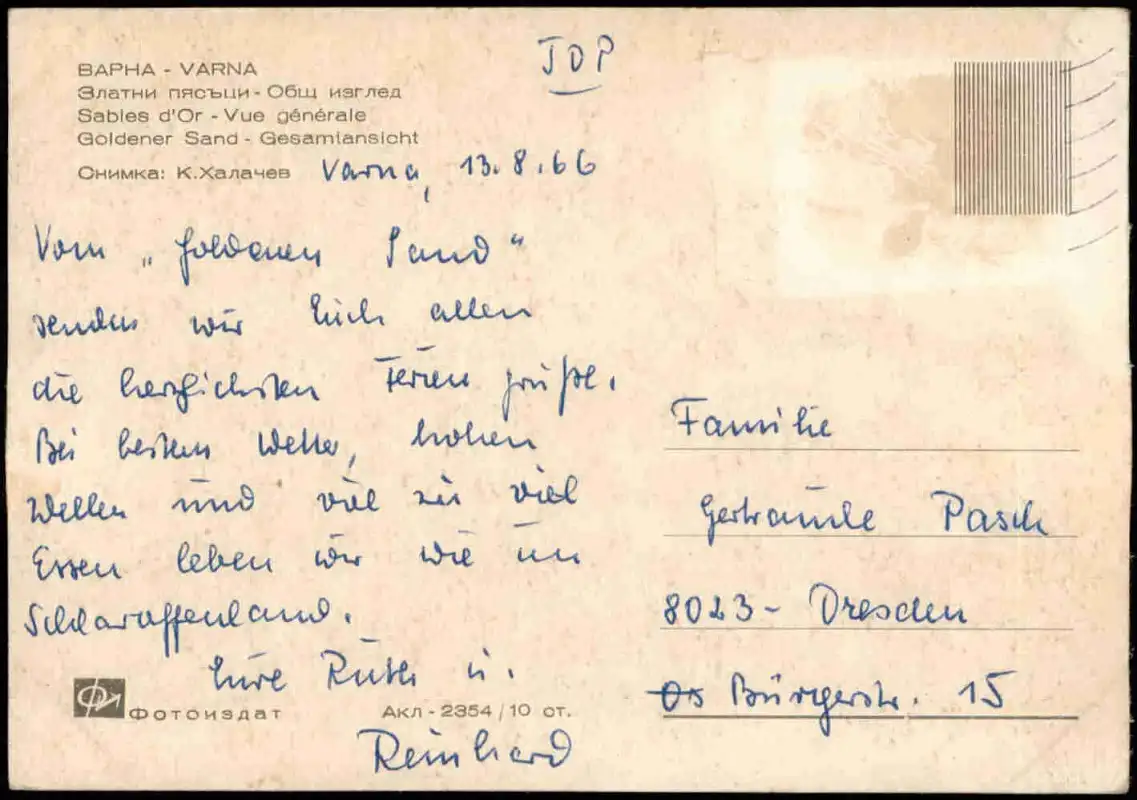 ВАРНА - VARNA
Златни пясъци - Общ изглед
Sables d'Or - Vue générale
Goldener Sand - Gesamtansicht
Снимка: К.Халачев
Varna, 13.8.66
Vom „Goldenen Sand"
senden wir Euch allen
die herzlichsten Ferien grüße.
Bei bestem Wetter, hohen
Wellen und viel zu viel
Essen leben wir wie im
Schlaraffenland.
Eure Ruth u.
Reinhard
Фотоиздат
Акл - 2354/10 ст.
Familie
Gertraude Pasch
8023 - Dresden
Bürgerstr. 15